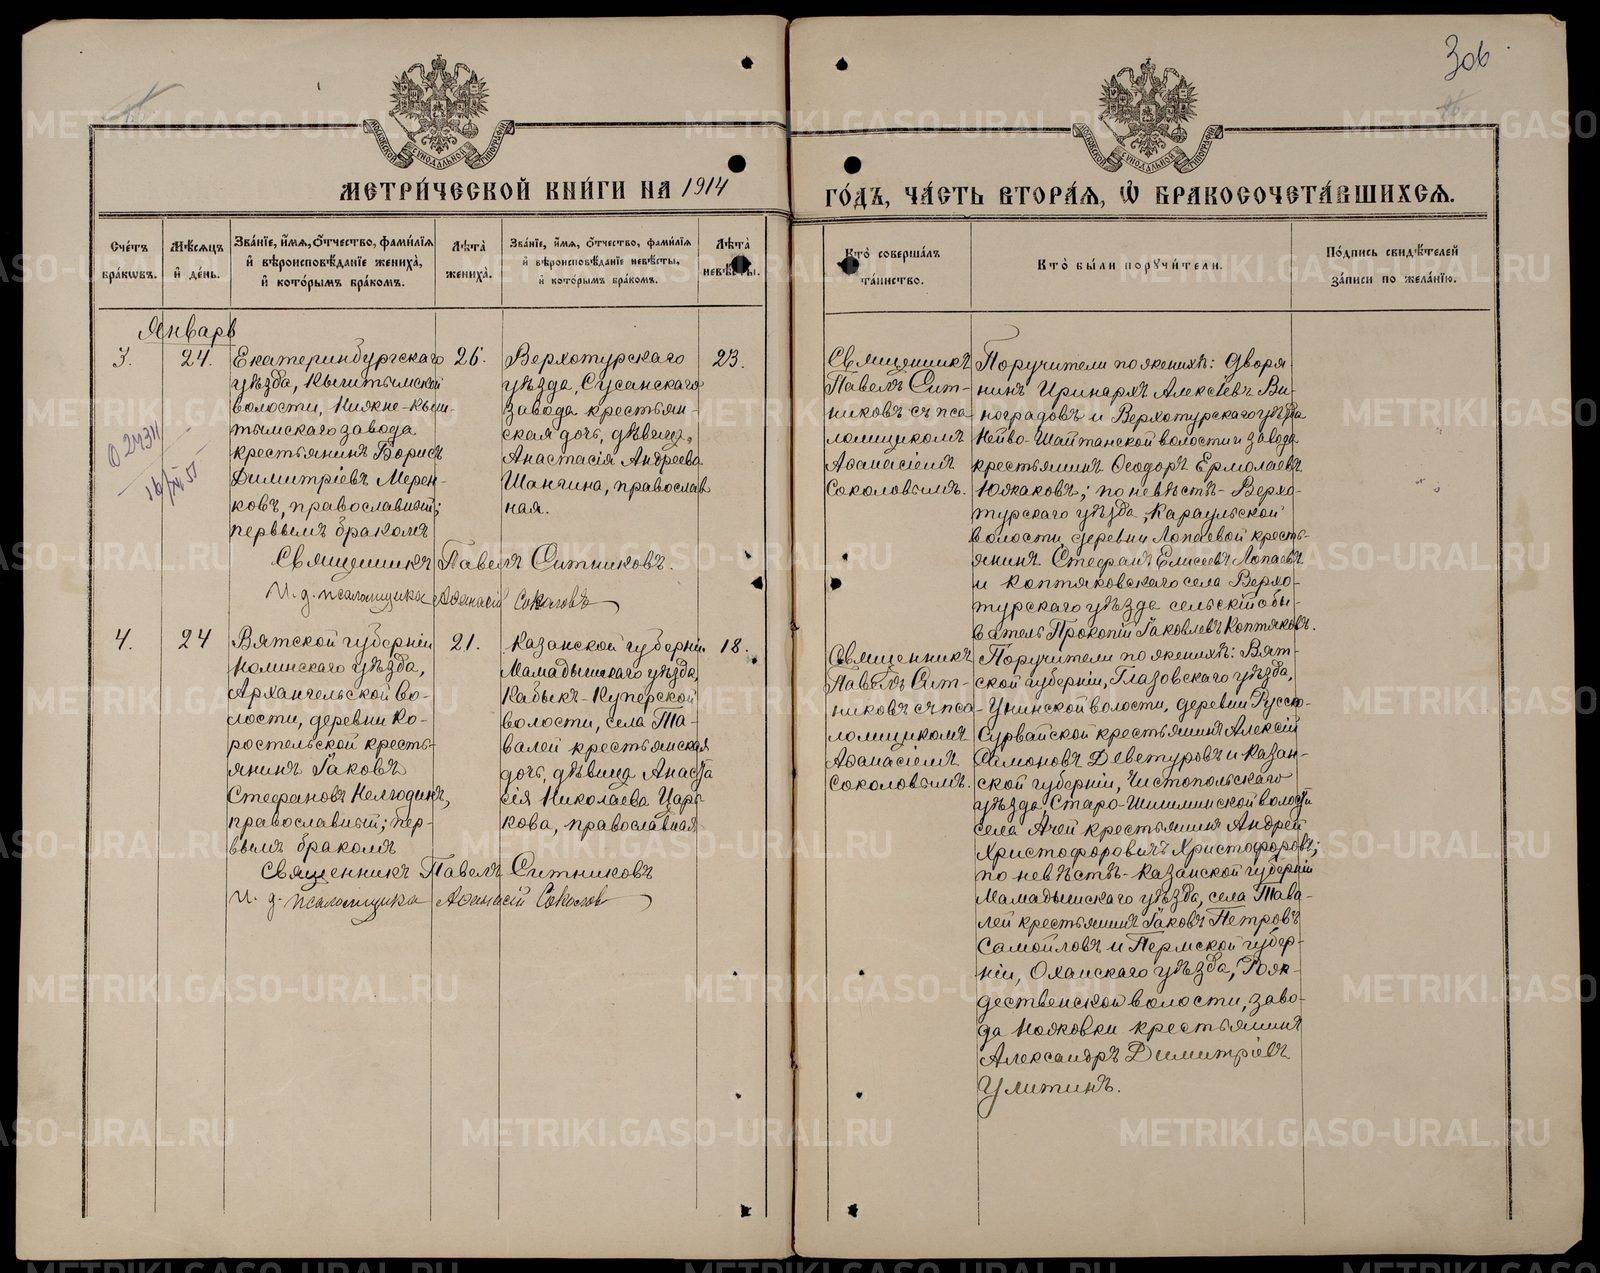 306
МОСКОВСКОЙ СѴНОДАЛЬНОЙ ТИПОГРАФІИ
МОСКОВСКОЙ СѴНОДАЛЬНОЙ ТИПОГРАФІИ
МЕТРИ́ЧЕСКОЙ КНИ́ГИ НА 1914
ГО́ДЪ, ЧА́СТЬ ВТОРА́Я, Ѽ БРАКОСОЧЕТА́ВШИХСЯ.
Сче́тъ бра́кѡвъ.
Мѣ́сяцъ и҆ де́нь.
Зва́нїе, и҆́мя, ѻ҆́тчество, фами́лїя
и҆ вѣроисповѣ́данїе жениха̀,
и҆ кото́рымъ бра́комъ.
Лѣта̀ жениха̀.
Зва́нїе, и҆́мя, ѻ҆́тчество, фами́лїя
и҆ вѣроисповѣ́данїе невѣ́сты,
и҆ кото́рымъ бра́комъ.
Лѣта̀ невѣ́сты.
Кто̀ соверша́лъ та́инство.
Кто̀ бы́ли порꙋчи́тели.
По́дпись свидѣ́телей
за́писи по жела́нїю.
Январь
3.
24.
Екатеринбургскаго
уѣзда, Кыштымской
волости, Нижне-Кыш-
тымскаго завода
крестьянинъ Борисъ
Димитріевъ Мерен-
ковъ, православный;
первымъ бракомъ
26.
Верхотурскаго
уѣзда, Сусанскаго
завода крестьян-
ская дочь, дѣвица,
Анастасія Андреева
Шангина, православ
ная.
23.
Священникъ Павелъ Ситниковъ.
И. д. псаломщика Аѳанасій Соколовъ
Священникъ
Павелъ Сит-
никовъ съ пса
ломщикомъ
Аѳанасіемъ
Соколовымъ.
Поручители по женихѣ: Дворя
нинъ Иринархъ Алексѣевъ Ви-
ноградовъ и Верхотурскаго уѣзда
Нейво-Шайтанской волости и завода
крестьянинъ Ѳеодоръ Ермолаевъ
Южаковъ; по невѣстѣ- Верхо-
турскаго уѣзда, Караульской
волости деревни Лопаевой кресть-
янинъ Стефанъ Елисеевъ Лопаевъ
и Коптяковскаго села Верхо-
турскаго уѣзда сельскій обы-
ватель Прокопій Іаковлевъ Коптяковъ.
4.
24
Вятской губерніи
Нолинскаго уѣзда,
Архангельской во-
лости, деревни Ко-
ростельской кресть-
янинъ Іаковъ
Стефановъ
православный; пер-
вымъ бракомъ
21.
Казанской губерніи
Мамадышскаго уѣзда,
Кабыкъ-Куперской
волости, села Та-
валей крестьянская
дочь, дѣвица Анаста
сія Николаева Царь-
кова, православная
18.
Священникъ Павелъ Ситниковъ
И. д. псаломщика Аѳанасій Соколовъ
Священникъ
Павелъ Сит-
никовъ съ пса
ломщикомъ
Аѳанасіемъ
Соколовымъ.
Поручители по женихѣ: Вят-
ской губерніи, Глазовскаго уѣзда,
Унинской волости, деревни Русско-
Сурвайской крестьянинъ Алексій
Симоновъ Деветуровъ и Казан-
ской губерніи, Чистопольскаго
уѣзда Старо-Шишминской волости
села Ачей крестьянинъ Андрей
Христофоровичъ Христофоровъ;
по невѣстѣ- Казанской губерніи
Мамадышскаго уѣзда, села Тава-
лей крестьянинъ Іаковъ Петровъ
Самойловъ и Пермской губер-
ніи, Оханскаго уѣзда, Рож-
дественской волости, заво-
да Ножовки крестьянинъ
Александръ Димитріевъ
Улитинъ.
METRIKI.GASO-URAL.RU